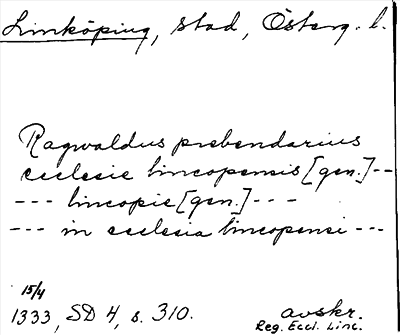 Linköping, stad, Österg. l.
Ragwaldus prebendarius
ecclesie lincopensis [gen.] --
--- lincopie [gen.] ---
--- in ecclesia lincopensi ---
15/4
1333, SD 4, s. 310.
avskr.
Reg. Eccl. Linc.